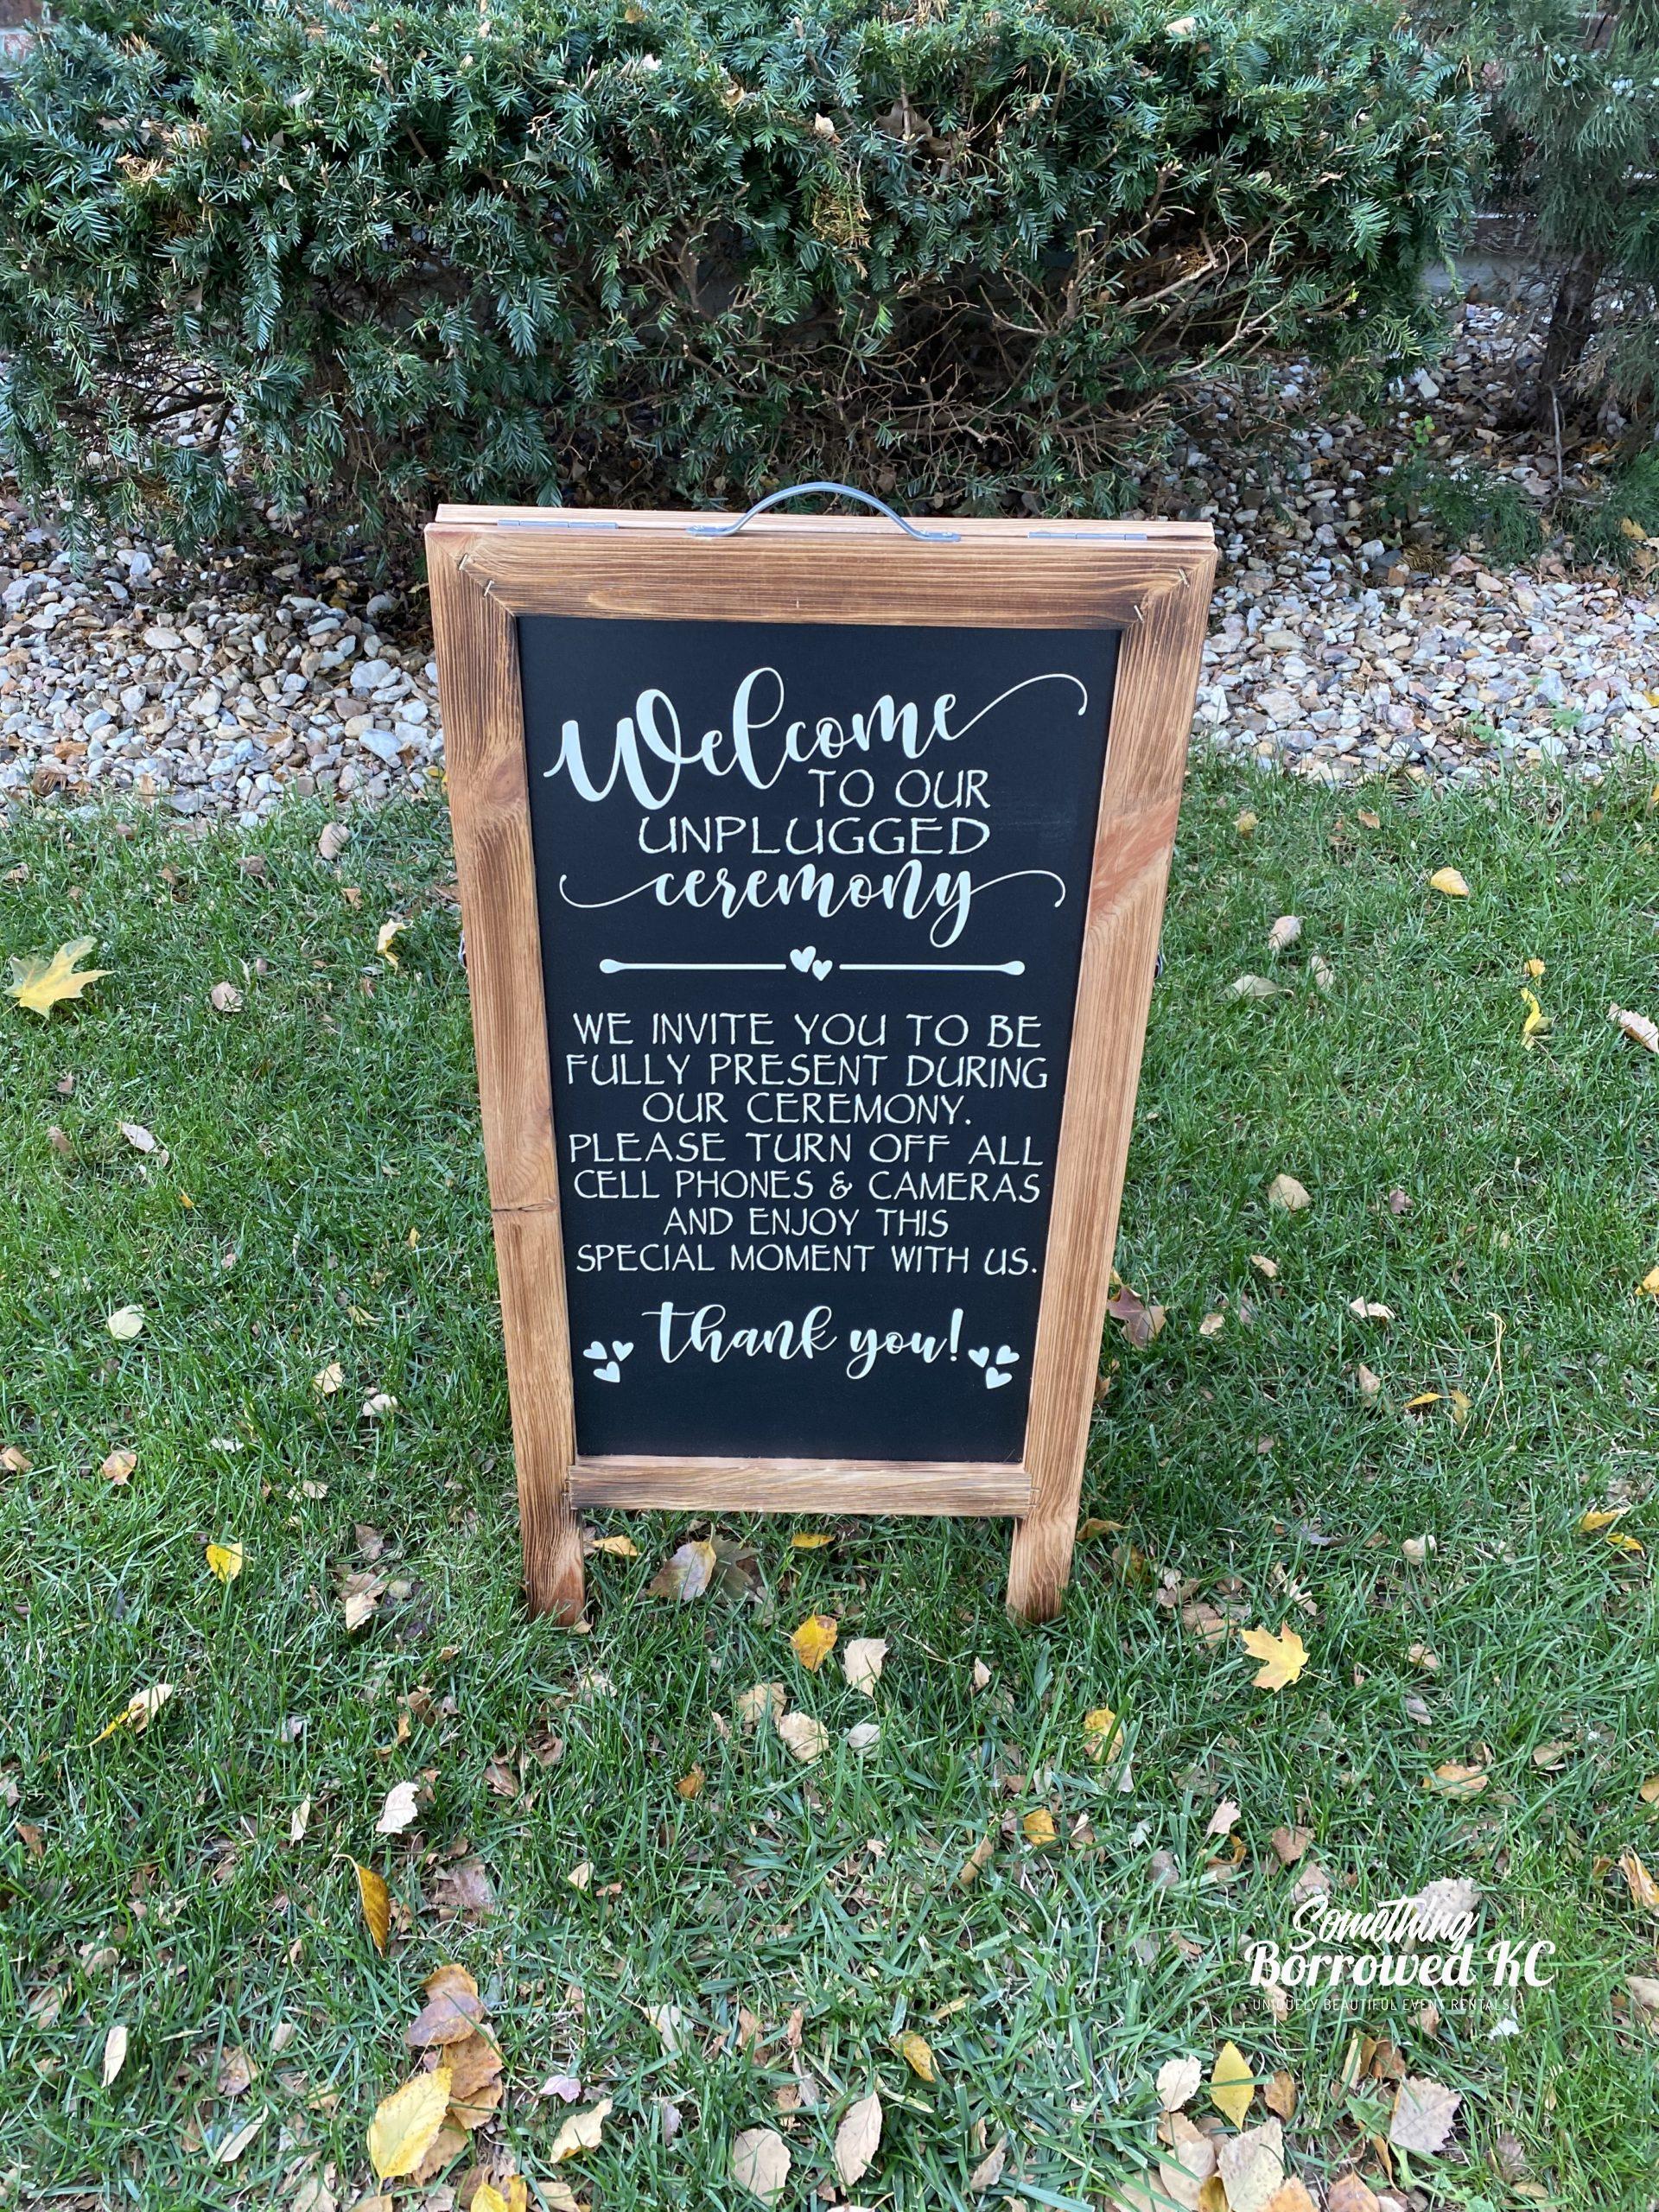 Welcome
TO OUR
UNPLUGGED
ceremony
WE INVITE YOU TO BE
FULLY PRESENT DURING
OUR CEREMONY.
PLEASE TURN OFF ALL
CELL PHONES & CAMERAS
AND ENJOY THIS
SPECIAL MOMENT WITH US.
thank you!
Something
Borrowed KC
UNIQUELY BEAUTIFUL EVENT RENTALS